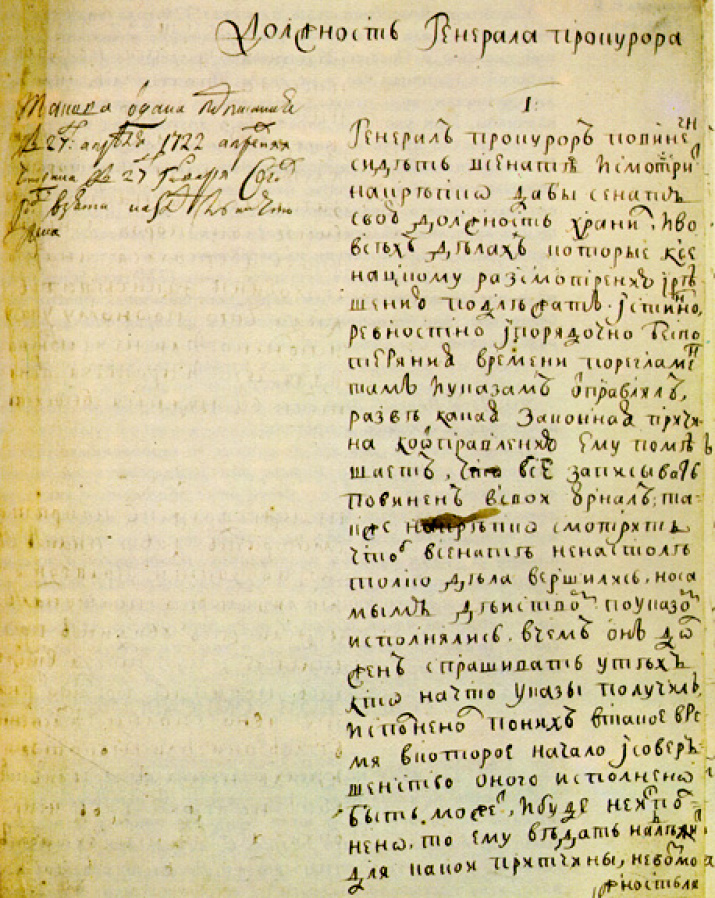 Должность Генерала прокурора
Такова отдана
27 апреля 1722 апреля
27 Генваря
взяты
1.
Генералъ прокуроръ повиненъ
сидѣть всенатѣ исмотрить
накрѣпко дабы сенатъ
свою должность хранилъ, иво
всѣхъ дѣлахъ которые ксе
натцкому разсмотрению ірѣ
шению подлежатъ. істинно,
ревностно іпорядочно беспо
теряния времени порегламен
тамъ иуказамъ отправлялъ,
развѣ какая законная причи
на котправлению ему помѣ
шаетъ, что все записывать
повиненъ всвой юрналъ, та
кже накрѣпко смотрить
чтоб всенатѣ ненастолѣ
толко дѣла вершились, носа
мымъ дѣйствомъ поуказомъ
исполнялись, вчемъ онъ дол
женъ спрашивать утѣхъ
кто начто указы получилъ,
исполнено поних втакое вре
мя вкоторое начало ісовер
шенство оного исполнено
быть можетъ, ибуде неисполь
нено, то ему вѣдать надлежитъ
для какой притчины, невозмо
жность ли